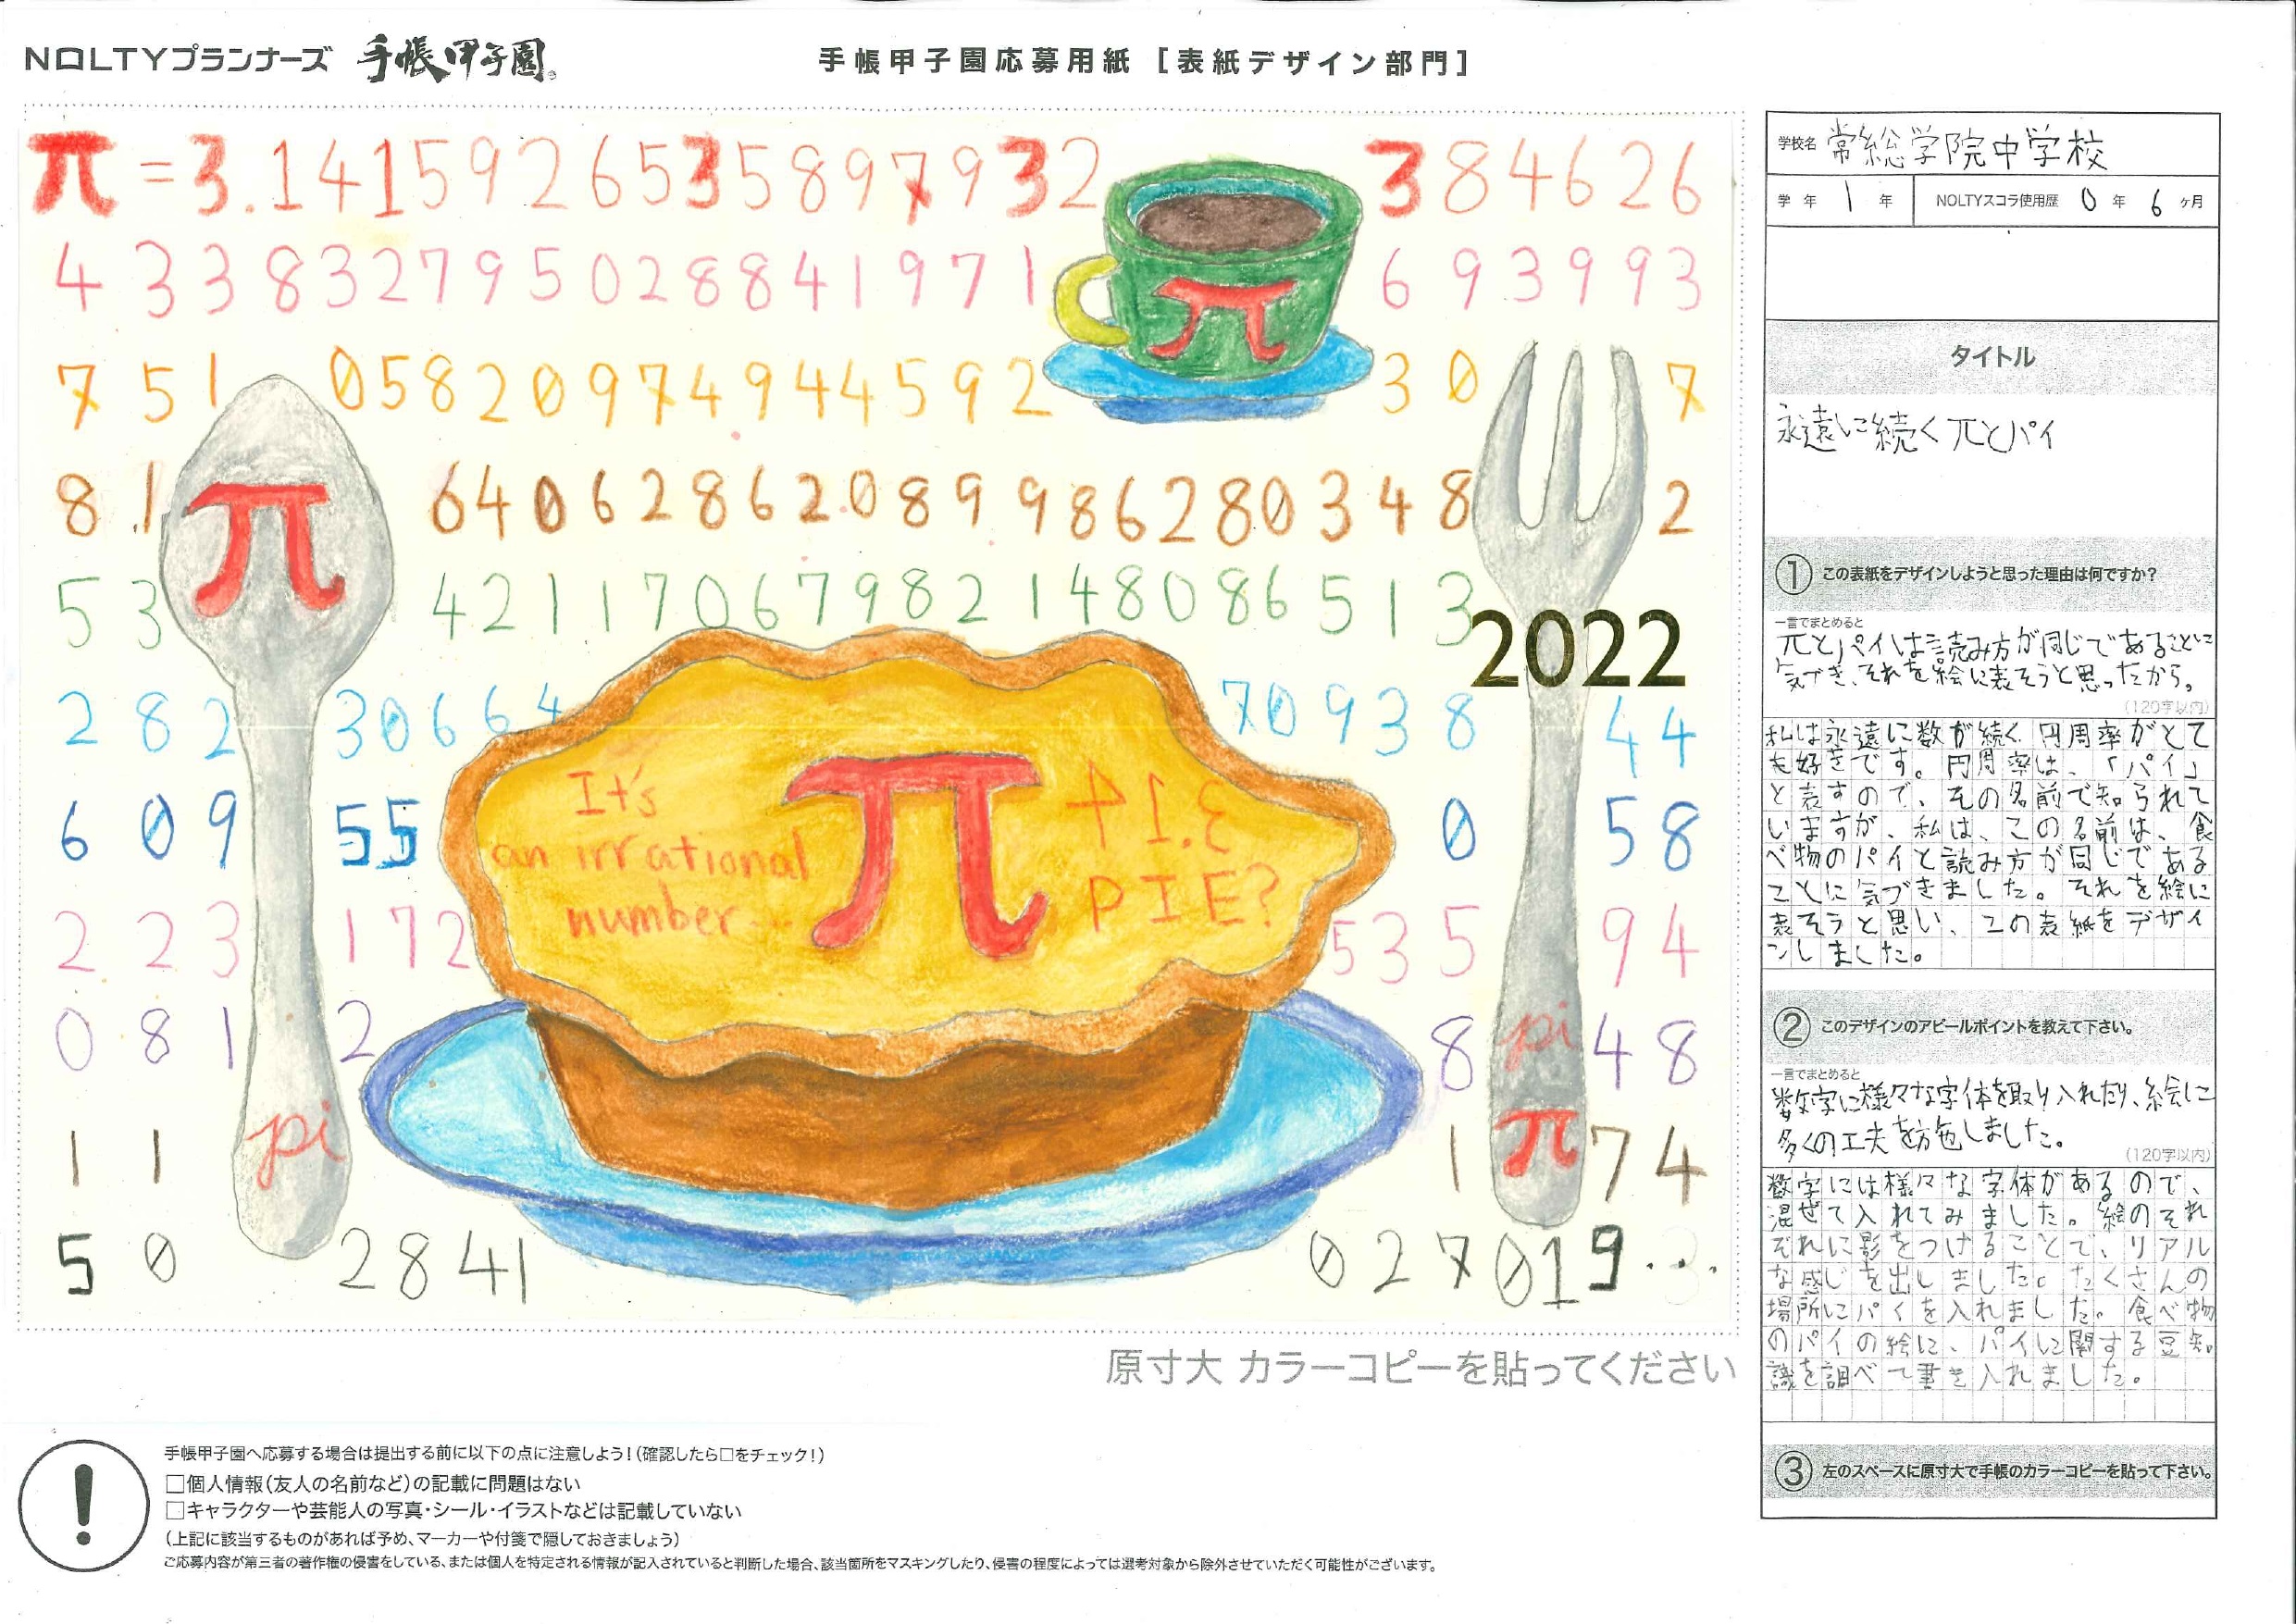 NOLTYプランナーズ 手帳甲子園。
手帳甲子園応募用紙 [表紙デザイン部門]
π=3.1415926535897932 384626
433832795028841971 693993
751 05820974944592 30 7
81 64062862089986280348 2
53 42117067982148086513
2022
282 30664 70938 44
609 55 0 58
223 172 535 94
081 2 8 48
11 1 74
50 2841 027019...
π
π
pi
It's
an irrational
number...
π
41.3
PIE?
pi
π
原寸大 カラーコピーを貼ってください
学校名 常総学院中学校
学年 1 年 NOLTYスコラ使用歴 0 年 6 ヶ月
タイトル
永遠に続くπとパイ
① この表紙をデザインしようと思った理由は何ですか?
一言でまとめると
πとパイは読み方が同じであることに
気づき、それを絵に表そうと思ったから。
(120字以内)
私は永遠に数が続く円周率がとて
も好きです。円周率は、「パイ」
と表すので、その名前で知られて
いますが、私は、この名前は、食
べ物のパイと読み方が同じである
ことに気づきました。それを絵に
表そうと思い、この表紙をデザイ
ンしました。
② このデザインのアピールポイントを教えて下さい。
一言でまとめると
数字に様々な字体を取り入れたり、絵に
多くの工夫を施しました。
(120字以内)
数字には様々な字体があるので、
混ぜて入れてみました。絵のそれ
ぞれに影をつけることで、リアル
な感じを出しました。たくさんの
場所にパイを入れました。食べ物
のパイの絵に、パイに関する豆知
識を調べて書き入れました。
③ 左のスペースに原寸大で手帳のカラーコピーを貼って下さい。
!
手帳甲子園へ応募する場合は提出する前に以下の点に注意しよう!(確認したら□をチェック!)
□個人情報(友人の名前など)の記載に問題はない
□キャラクターや芸能人の写真・シール・イラストなどは記載していない
(上記に該当するものがあれば予め、マーカーや付箋で隠しておきましょう)
ご応募内容が第三者の著作権の侵害をしている、または個人を特定される情報が記入されていると判断した場合、該当箇所をマスキングしたり、侵害の程度によっては選考対象から除外させていただく可能性がございます。